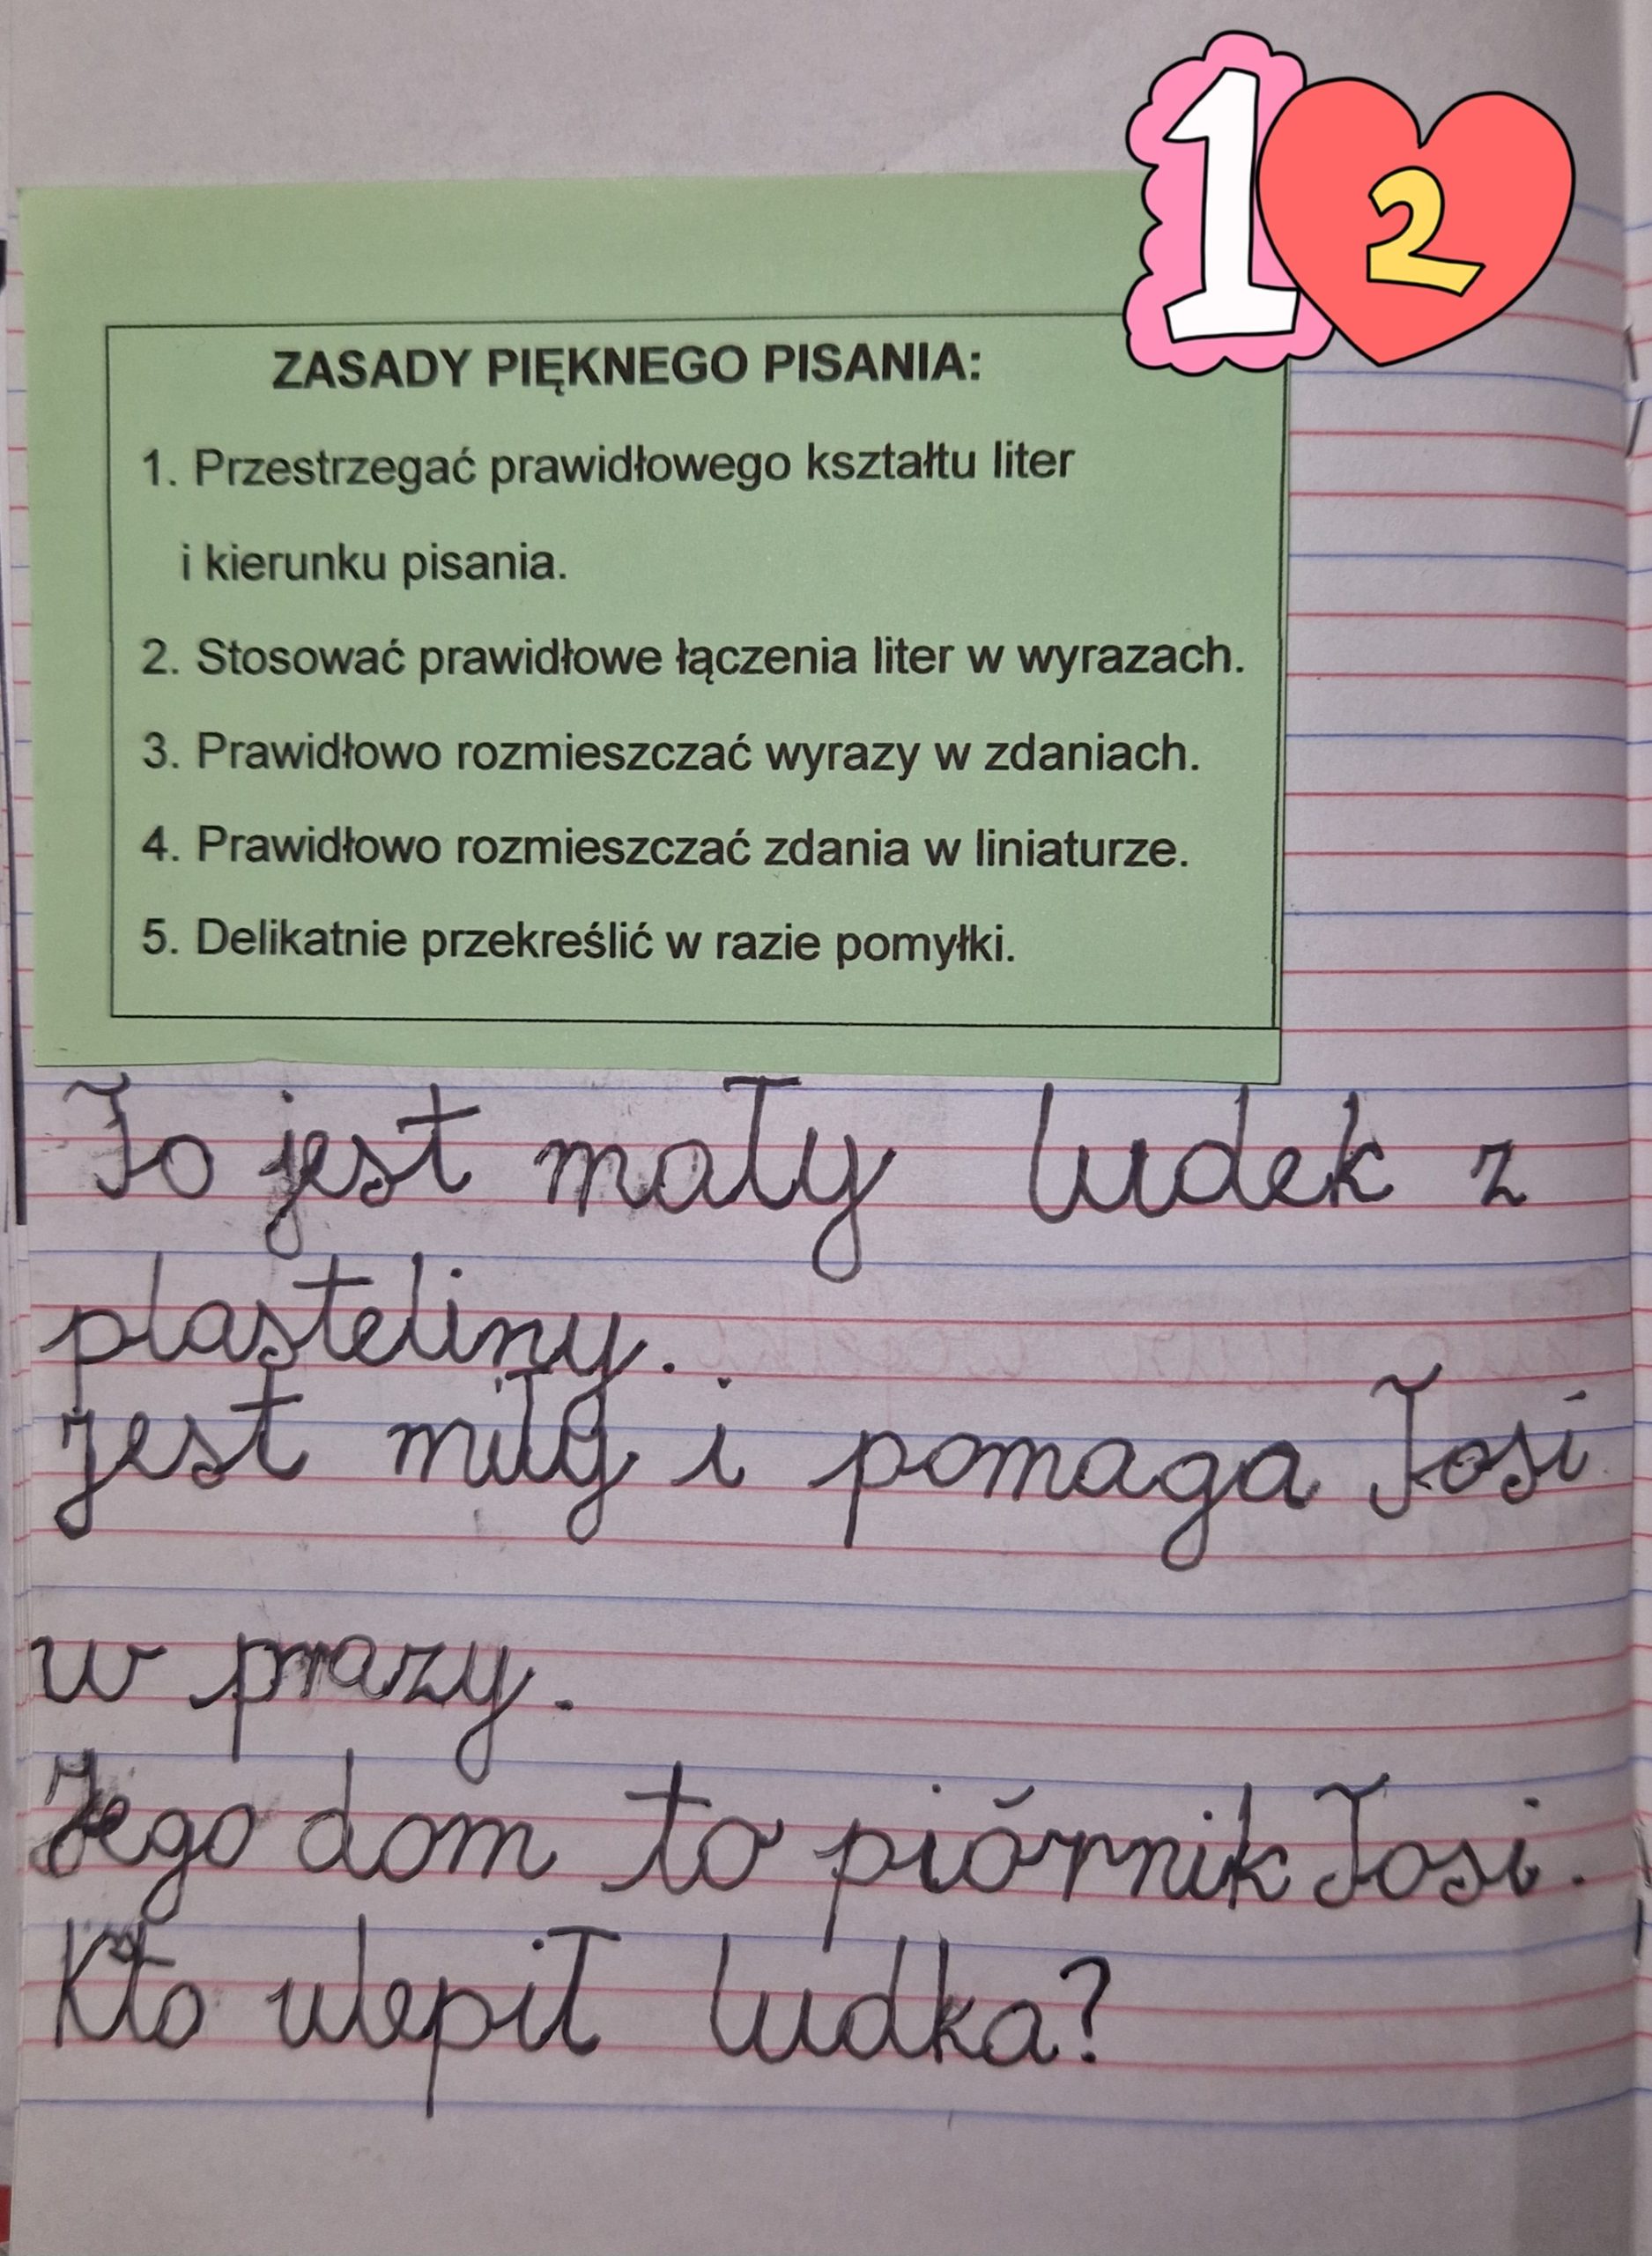 12
ZASADY PIĘKNEGO PISANIA:
1. Przestrzegać prawidłowego kształtu liter
i kierunku pisania.
2. Stosować prawidłowe łączenia liter w wyrazach.
3. Prawidłowo rozmieszczać wyrazy w zdaniach.
4. Prawidłowo rozmieszczać zdania w liniaturze.
5. Delikatnie przekreślić w razie pomyłki.
To jest mały ludek z
plasteliny.
Jest miły i pomaga Tosi
w prazy.
Jego dom to piórnik Tosi.
Kto ulepił ludka?